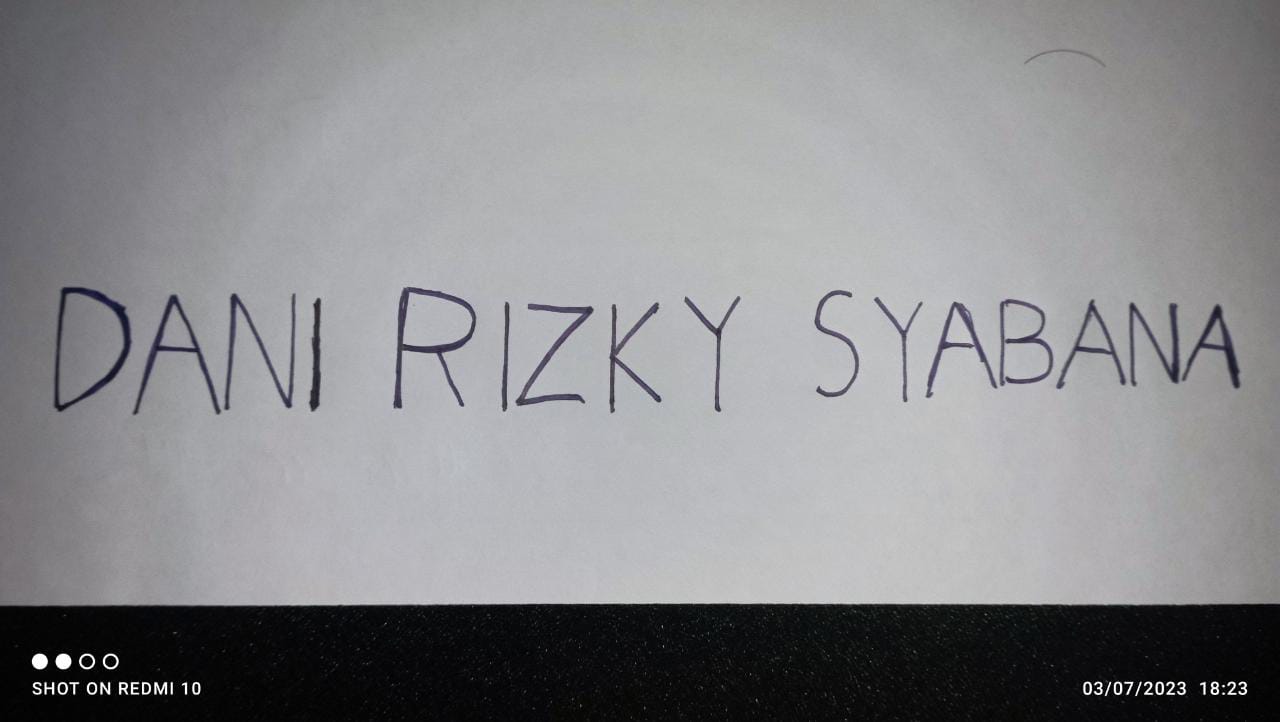 DANI RIZKY SYABANA
SHOT ON REDMI 10
03/07/2023 18:23